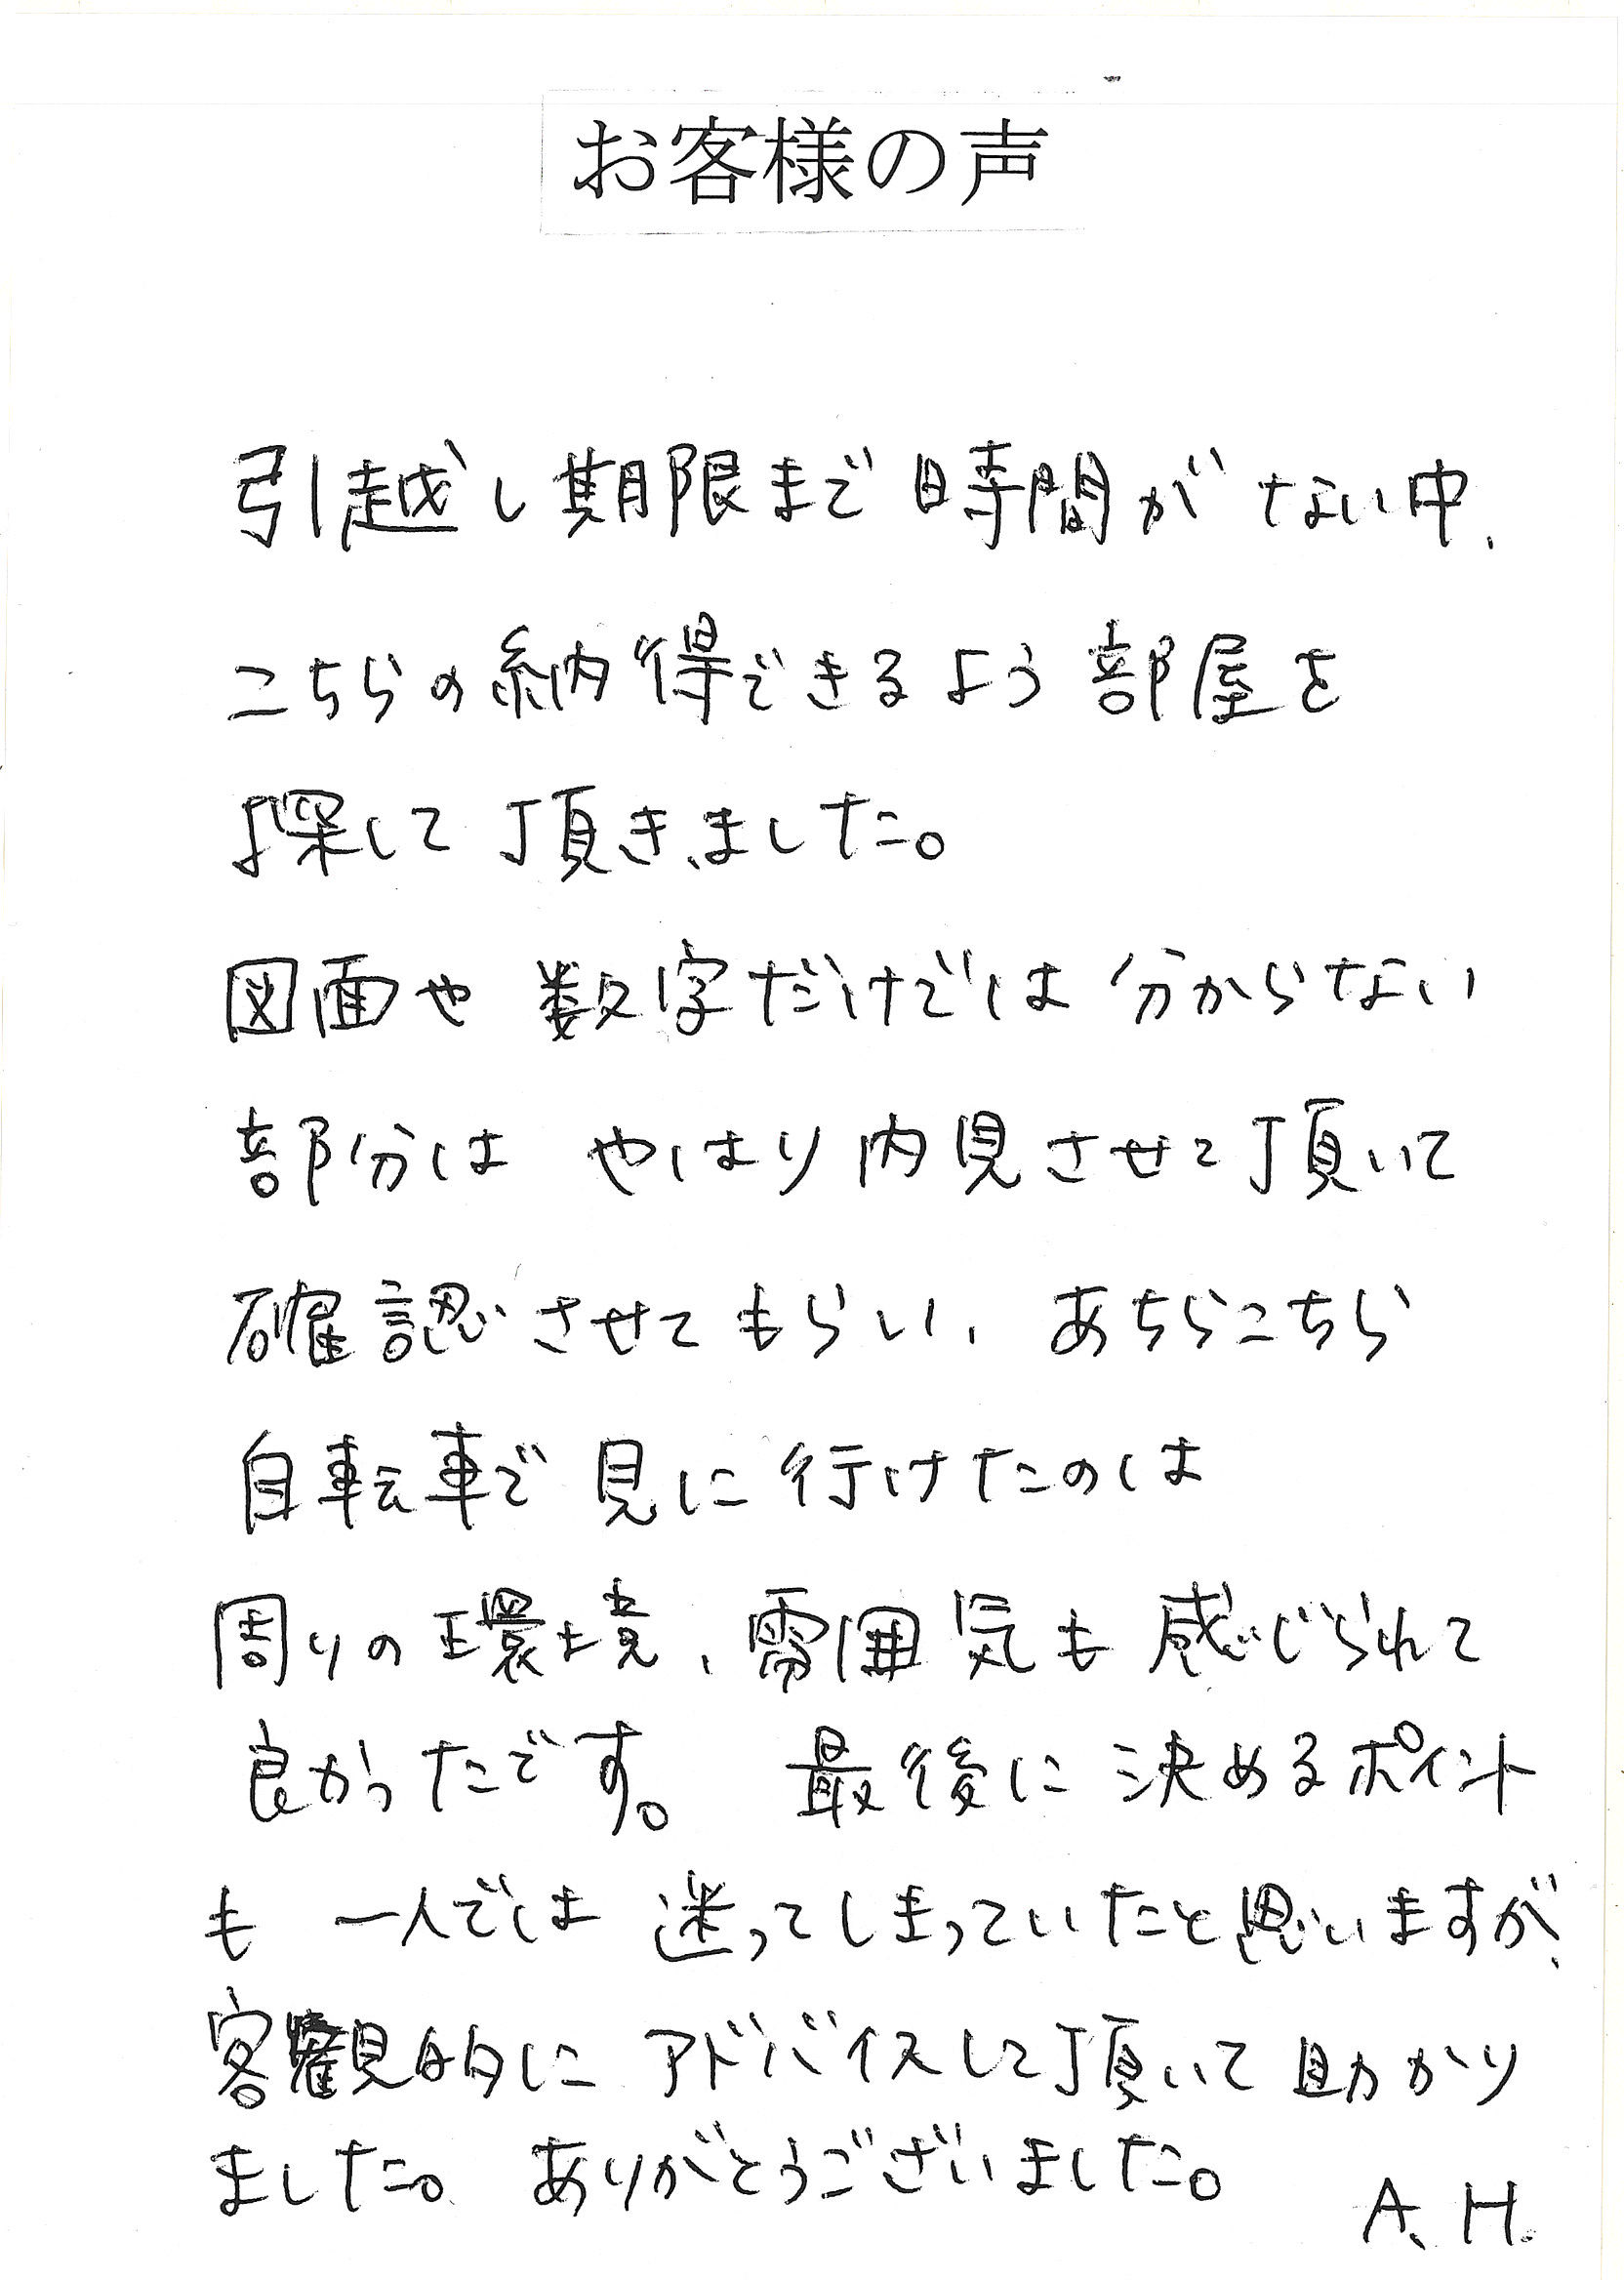 お客様の声
引越し期限まで時間がない中、
こちらの納得できるよう部屋を
探して頂きました。
図面や数字だけでは分からない
部分は やはり内見させて頂いて
確認させてもらい、あちらこちら
自転車で見に行けたのは
周りの環境、雰囲気も感じられて
良かったです。 最後に決めるポイント
も 一人では迷ってしまっていたと思いますが、
客観的にアドバイスして頂いて助かり
ました。ありがとうございました。
A.H.